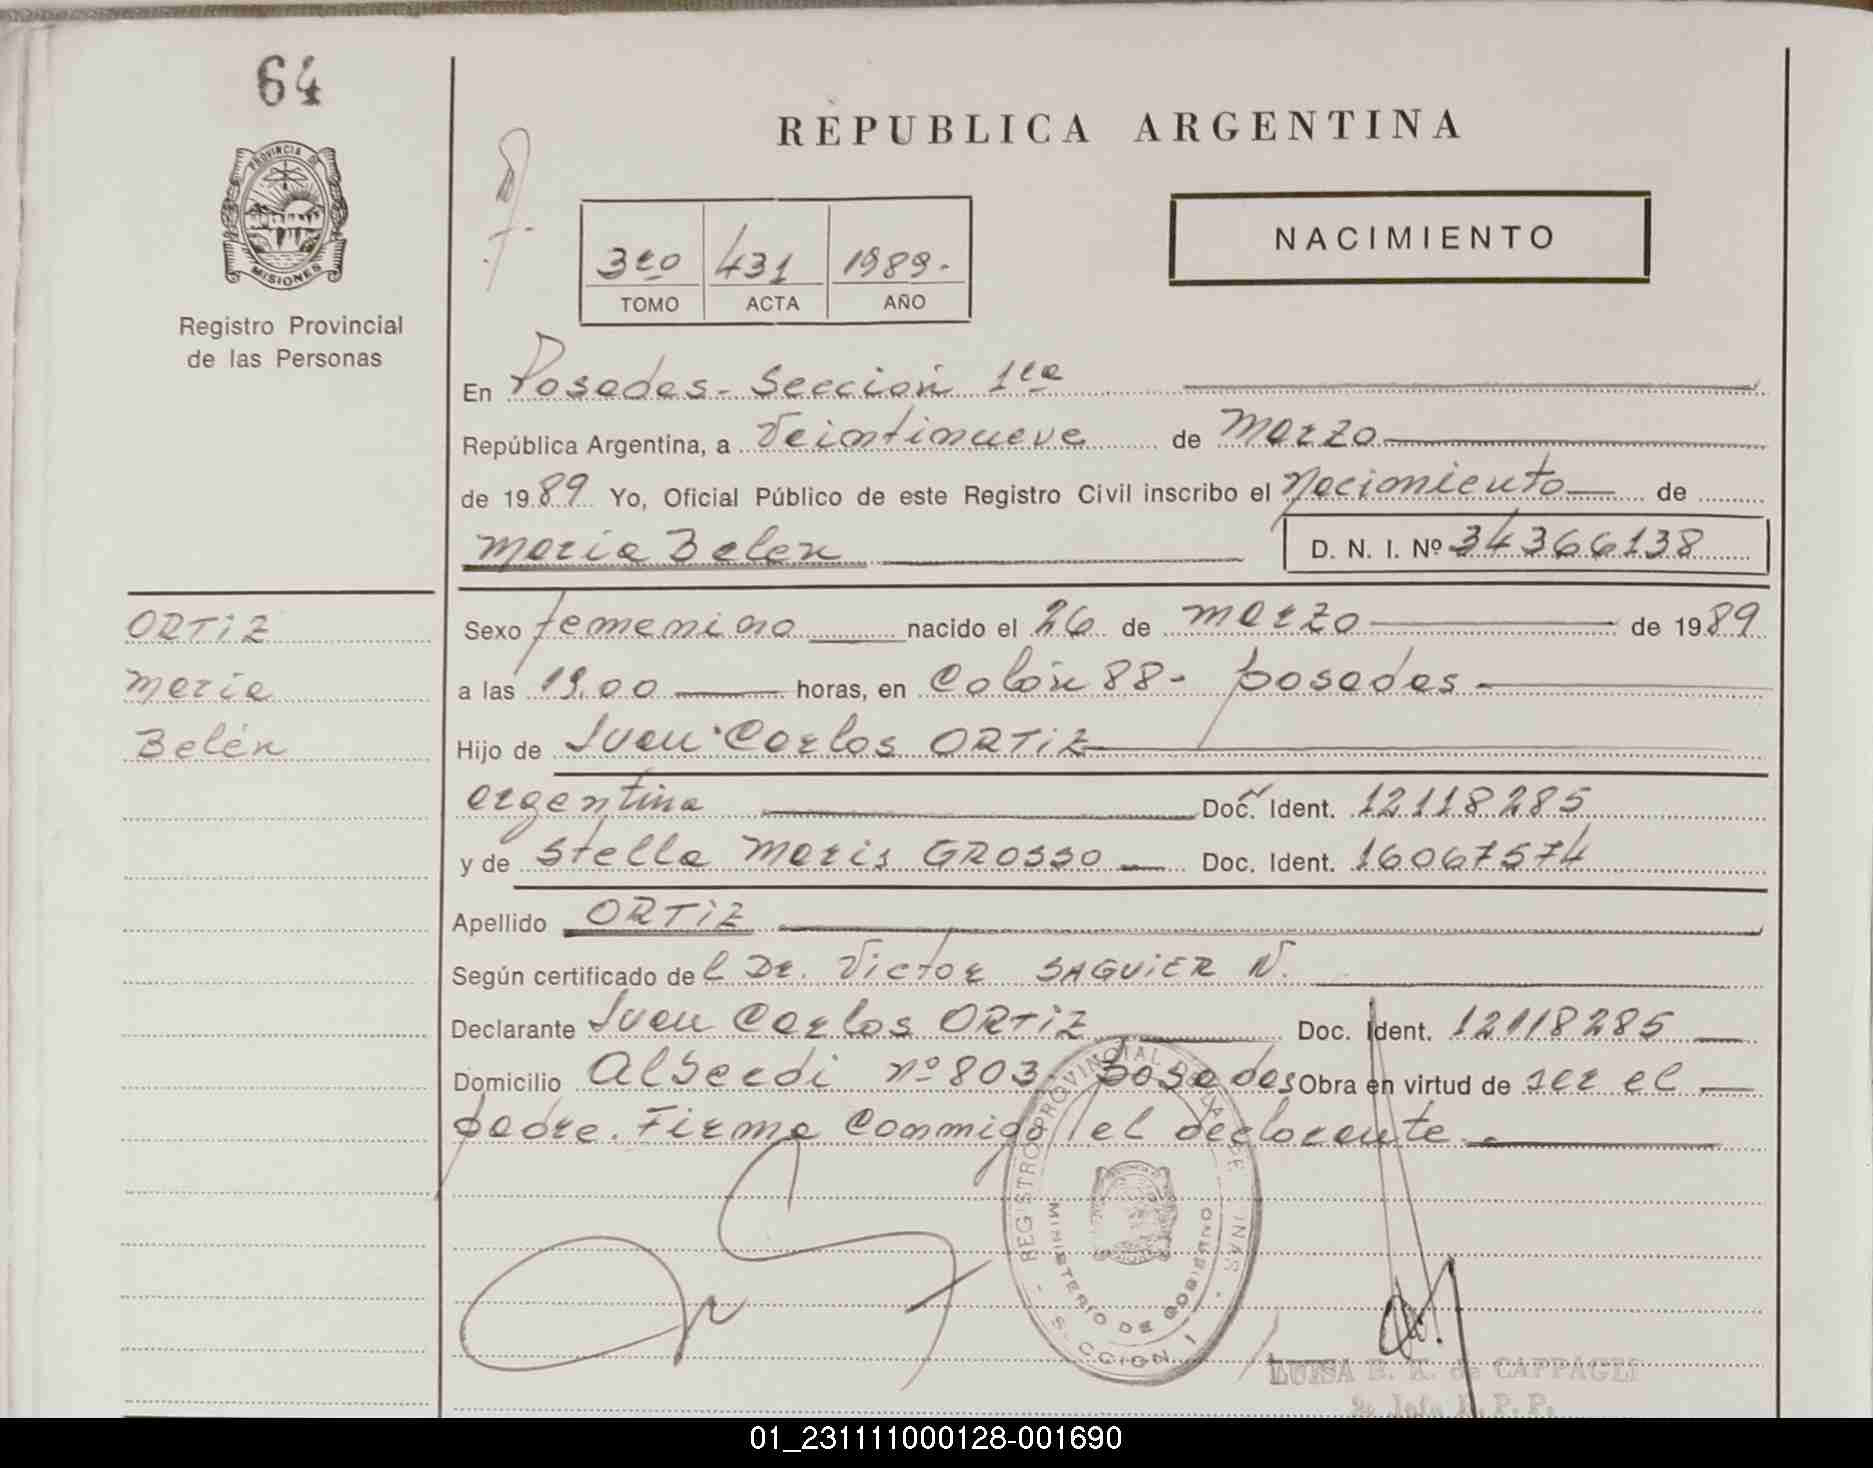 64
PROVINCIA DE
MISIONES
Registro Provincial
de las Personas
REPUBLICA ARGENTINA
NACIMIENTO
3ro 431 1989.
TOMO ACTA AÑO
En Posadas - Sección 1ra
República Argentina, a Veintinueve de Marzo
de 1989 Yo, Oficial Público de este Registro Civil inscribo el Nacimiento de
María Belén D. N. I. Nº 34366138
ORTIZ
María
Belén
Sexo femenino nacido el 26 de marzo de 1989
a las 19.00 horas, en Colón 88 - posadas -
Hijo de Juan Carlos ORTIZ
argentina Doc. Ident. 12118285
y de Stella Maris GROSSO Doc. Ident. 16067574
Apellido ORTIZ
Según certificado del Dr. Victor SAGUIER N.
Declarante Juan Carlos ORTIZ Doc. Ident. 12118285
Domicilio Alberdi nº 803. posadas Obra en virtud de ser el
padre. Firma Conmigo el declarante.
REGISTRO PROVINCIAL DE LAS
MINISTERIO DE GOBIERNO
LUISA de CAPPAGLI
R. P. P.
01_231111000128-001690